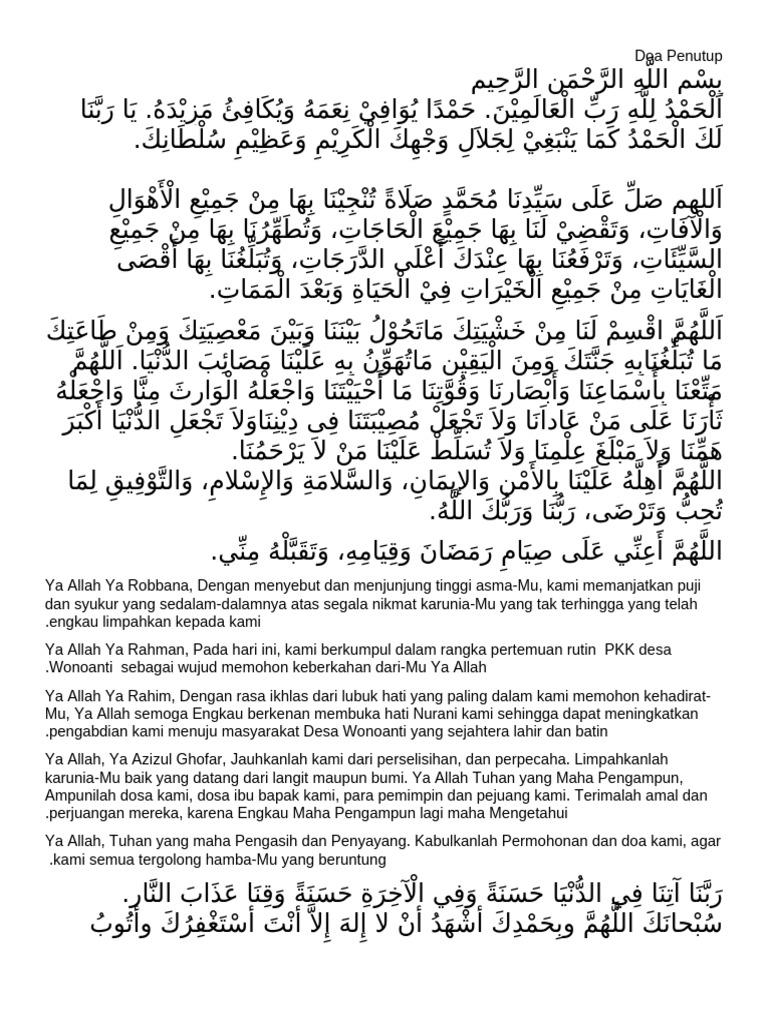 Doa Penutup
بِسْمِ اللَّهِ الرَّحْمَنِ الرَّحِيم
اَلْحَمْدُ لِلَّهِ رَبِّ الْعَالَمِيْنَ. حَمْدًا يُوَافِيْ نِعَمَهُ وَيُكَافِئُ مَزِيْدَهُ. يَا رَبَّنَا
لَكَ الْحَمْدُ كَمَا يَنْبَغِيْ لِجَلاَلِ وَجْهِكَ الْكَرِيْمِ وَعَظِيْمِ سُلْطَانِكَ.
اَللهم صَلِّ عَلَى سَيِّدِنَا مُحَمَّدٍ صَلَاةً تُنْجِيْنَا بِهَا مِنْ جَمِيْعِ الْأَهْوَالِ
وَالْآفَاتِ، وَتَقْضِيْ لَنَا بِهَا جَمِيْعَ الْحَاجَاتِ، وَتُطَهِّرُنَا بِهَا مِنْ جَمِيْعِ
السَّيِّئَاتِ، وَتَرْفَعُنَا بِهَا عِنْدَكَ أَعْلَى الدَّرَجَاتِ، وَتُبَلِّغُنَا بِهَا أَقْصَى
الْغَايَاتِ مِنْ جَمِيْعِ الْخَيْرَاتِ فِيْ الْحَيَاةِ وَبَعْدَ الْمَمَاتِ.
اَللَّهُمَّ اقْسِمْ لَنَا مِنْ خَشْيَتِكَ مَاتَحُوْلُ بَيْنَنَا وَبَيْنَ مَعْصِيَتِكَ وَمِنْ طَاعَتِكَ
مَا تُبَلِّغُنَابِهِ جَنَّتَكَ وَمِنَ الْيَقِيْنِ مَاتُهَوِّنُ بِهِ عَلَيْنَا مَصَائِبَ الدُّنْيَا. اَللَّهُمَّ
مَتِّعْنَا بِأَسْمَاعِنَا وَأَبْصَارِنَا وَقُوَّتِنَا مَا أَحْيَيْتَنَا وَاجْعَلْهُ الْوَارِثَ مِنَّا وَاجْعَلْهُ
ثَأْرَنَا عَلَى مَنْ عَادَانَا وَلاَ تَجْعَلْ مُصِيْبَتَنَا فِى دِيْنِنَاوَلاَ تَجْعَلِ الدُّنْيَا أَكْبَرَ
هَمِّنَا وَلاَ مَبْلَغَ عِلْمِنَا وَلاَ تُسَلِّطْ عَلَيْنَا مَنْ لاَ يَرْحَمُنَا.
اللَّهُمَّ أَهِلَّهُ عَلَيْنَا بِالأَمْنِ وَالإِيمَانِ، وَالسَّلامَةِ وَالإِسْلامِ، وَالتَّوْفِيقِ لِمَا
تُحِبُّ وَتَرْضَى، رَبُّنَا وَرَبُّكَ اللَّهُ.
اللَّهُمَّ أَعِنِّي عَلَى صِيَامِ رَمَضَانَ وَقِيَامِهِ، وَتَقَبَّلْهُ مِنِّي.
Ya Allah Ya Robbana, Dengan menyebut dan menjunjung tinggi asma-Mu, kami memanjatkan puji
dan syukur yang sedalam-dalamnya atas segala nikmat karunia-Mu yang tak terhingga yang telah
.engkau limpahkan kepada kami
Ya Allah Ya Rahman, Pada hari ini, kami berkumpul dalam rangka pertemuan rutin  PKK desa
.Wonoanti  sebagai wujud memohon keberkahan dari-Mu Ya Allah
Ya Allah Ya Rahim, Dengan rasa ikhlas dari lubuk hati yang paling dalam kami memohon kehadirat-
Mu, Ya Allah semoga Engkau berkenan membuka hati Nurani kami sehingga dapat meningkatkan
.pengabdian kami menuju masyarakat Desa Wonoanti yang sejahtera lahir dan batin
Ya Allah, Ya Azizul Ghofar, Jauhkanlah kami dari perselisihan, dan perpecaha. Limpahkanlah
karunia-Mu baik yang datang dari langit maupun bumi. Ya Allah Tuhan yang Maha Pengampun,
Ampunilah dosa kami, dosa ibu bapak kami, para pemimpin dan pejuang kami. Terimalah amal dan
.perjuangan mereka, karena Engkau Maha Pengampun lagi maha Mengetahui
Ya Allah, Tuhan yang maha Pengasih dan Penyayang. Kabulkanlah Permohonan dan doa kami, agar
.kami semua tergolong hamba-Mu yang beruntung
رَبَّنَا آتِنَا فِي الدُّنْيَا حَسَنَةً وَفِي الْآخِرَةِ حَسَنَةً وَقِنَا عَذَابَ النَّارِ.
سُبْحانَكَ اللَّهُمَّ وبِحَمْدِكَ أشْهَدُ أنْ لا إِلهَ إِلاَّ أنْتَ أسْتَغْفِرُكَ وأتُوبُ